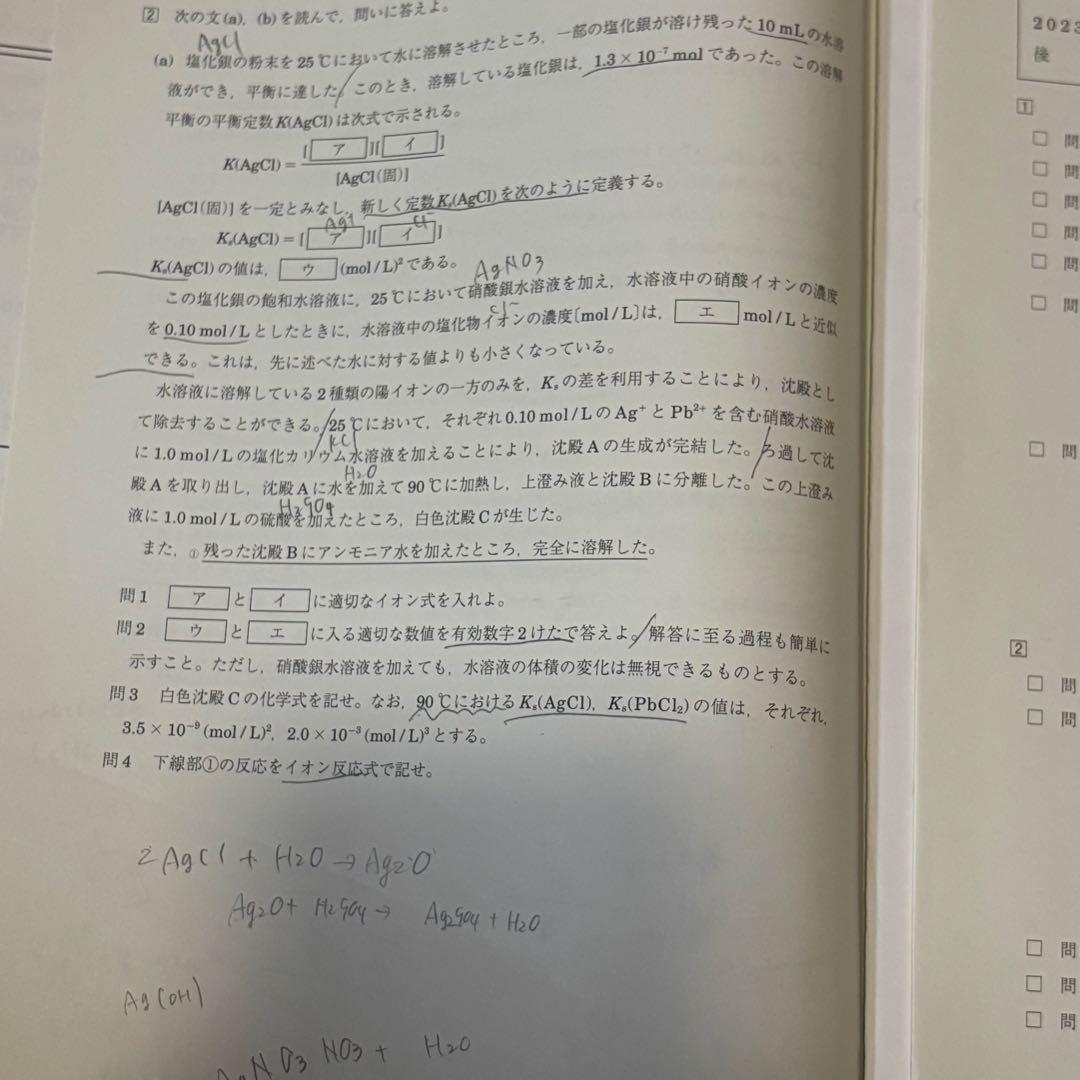 2 次の文(a), (b)を読んで, 問いに答えよ。
AgCl
(a) 塩化銀の粉末を25℃において水に溶解させたところ, 一部の塩化銀が溶け残った10 mLの水溶
液ができ, 平衡に達した。このとき, 溶解している塩化銀は, 1.3×10⁻⁷molであった。この溶解
平衡の平衡定数K(AgCl)は次式で示される。
K(AgCl)=[ア][イ]/[AgCl(固)]
[AgCl(固)]を一定とみなし, 新しく定数Kₛ(AgCl)を次のように定義する。
Ag⁺ Cl⁻
Kₛ(AgCl)=[ア][イ]
Kₛ(AgCl)の値は, ウ (mol/L)²である。
AgNO3
この塩化銀の飽和水溶液に, 25℃において硝酸銀水溶液を加え, 水溶液中の硝酸イオンの濃度
Cl⁻
を0.10 mol/Lとしたときに, 水溶液中の塩化物イオンの濃度[mol/L]は, エ mol/Lと近似
できる。これは, 先に述べた水に対する値よりも小さくなっている。
水溶液に溶解している2種類の陽イオンの一方のみを, Kₛの差を利用することにより, 沈殿とし
て除去することができる。25℃において, それぞれ0.10 mol/LのAg⁺とPb²⁺を含む硝酸水溶液
KCl
に1.0 mol/Lの塩化カリウム水溶液を加えることにより, 沈殿Aの生成が完結した。ろ過して沈
H2O
殿Aを取り出し, 沈殿Aに水を加えて90℃に加熱し, 上澄み液と沈殿Bに分離した。この上澄み
H2SO4
液に1.0 mol/Lの硫酸を加えたところ, 白色沈殿Cが生じた。
また, ①残った沈殿Bにアンモニア水を加えたところ, 完全に溶解した。
問1 ア と イ に適切なイオン式を入れよ。
問2 ウ と エ に入る適切な数値を有効数字2けたで答えよ。解答に至る過程も簡単に
示すこと。ただし, 硝酸銀水溶液を加えても, 水溶液の体積の変化は無視できるものとする。
問3 白色沈殿Cの化学式を記せ。なお, 90℃におけるKₛ(AgCl), Kₛ(PbCl₂)の値は, それぞれ,
3.5×10⁻⁹(mol/L)², 2.0×10⁻³(mol/L)³とする。
問4 下線部①の反応をイオン反応式で記せ。
2AgCl + H2O → Ag2O
Ag2O + H2SO4 → Ag2SO4 + H2O
Ag(OH)
AgNO3 NO3 + H2O
2023
後
1
問
問
問
問
問
問
問
2
問
問
問
問
問